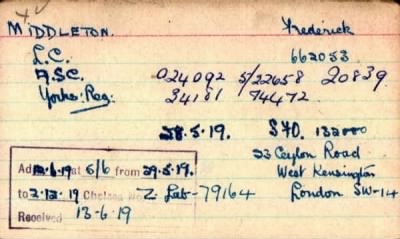 MIDDLETON. Frederick
L.C. 662053
A.S.C. 024092 S/22658 20839
Yorks: Reg: 34181 74472
28.5.19. S40. 132000
23 Ceylon Road
West Kensington
London SW-14
Ad 12.6.19 at 6/6 from 29.5.19.
to 2.12.19 Chelsea No Z Lab-79164
Received 13-6-19